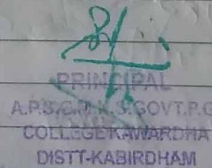 PRINCIPAL
GOVT.P.G
COLLEGE KAWARDHA
DISTT-KABIRDHAM